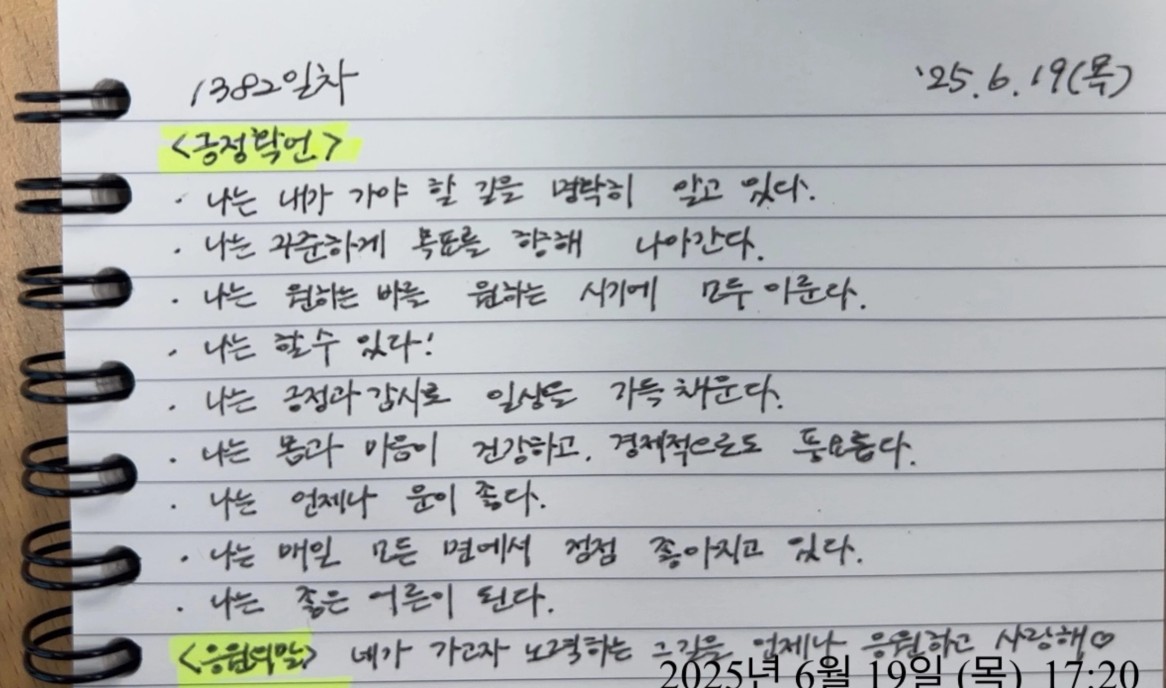 1382일차 '25.6.19(목)
<긍정확언>
· 나는 내가 가야 할 길을 명확히 알고 있다.
· 나는 꾸준하게 목표를 향해 나아간다.
· 나는 원하는 바를 원하는 시기에 모두 이룬다.
· 나는 할 수 있다!
· 나는 긍정과 감사로 일상을 가득 채운다.
· 나는 몸과 마음이 건강하고, 경제적으로도 풍요롭다.
· 나는 언제나 운이 좋다.
· 나는 매일 모든 면에서 점점 좋아지고 있다.
· 나는 좋은 어른이 된다.
<응원의말> 네가 가고자 노력하는 그길을 언제나 응원하고 사랑해♡
2025년 6월 19일 (목) 17:20